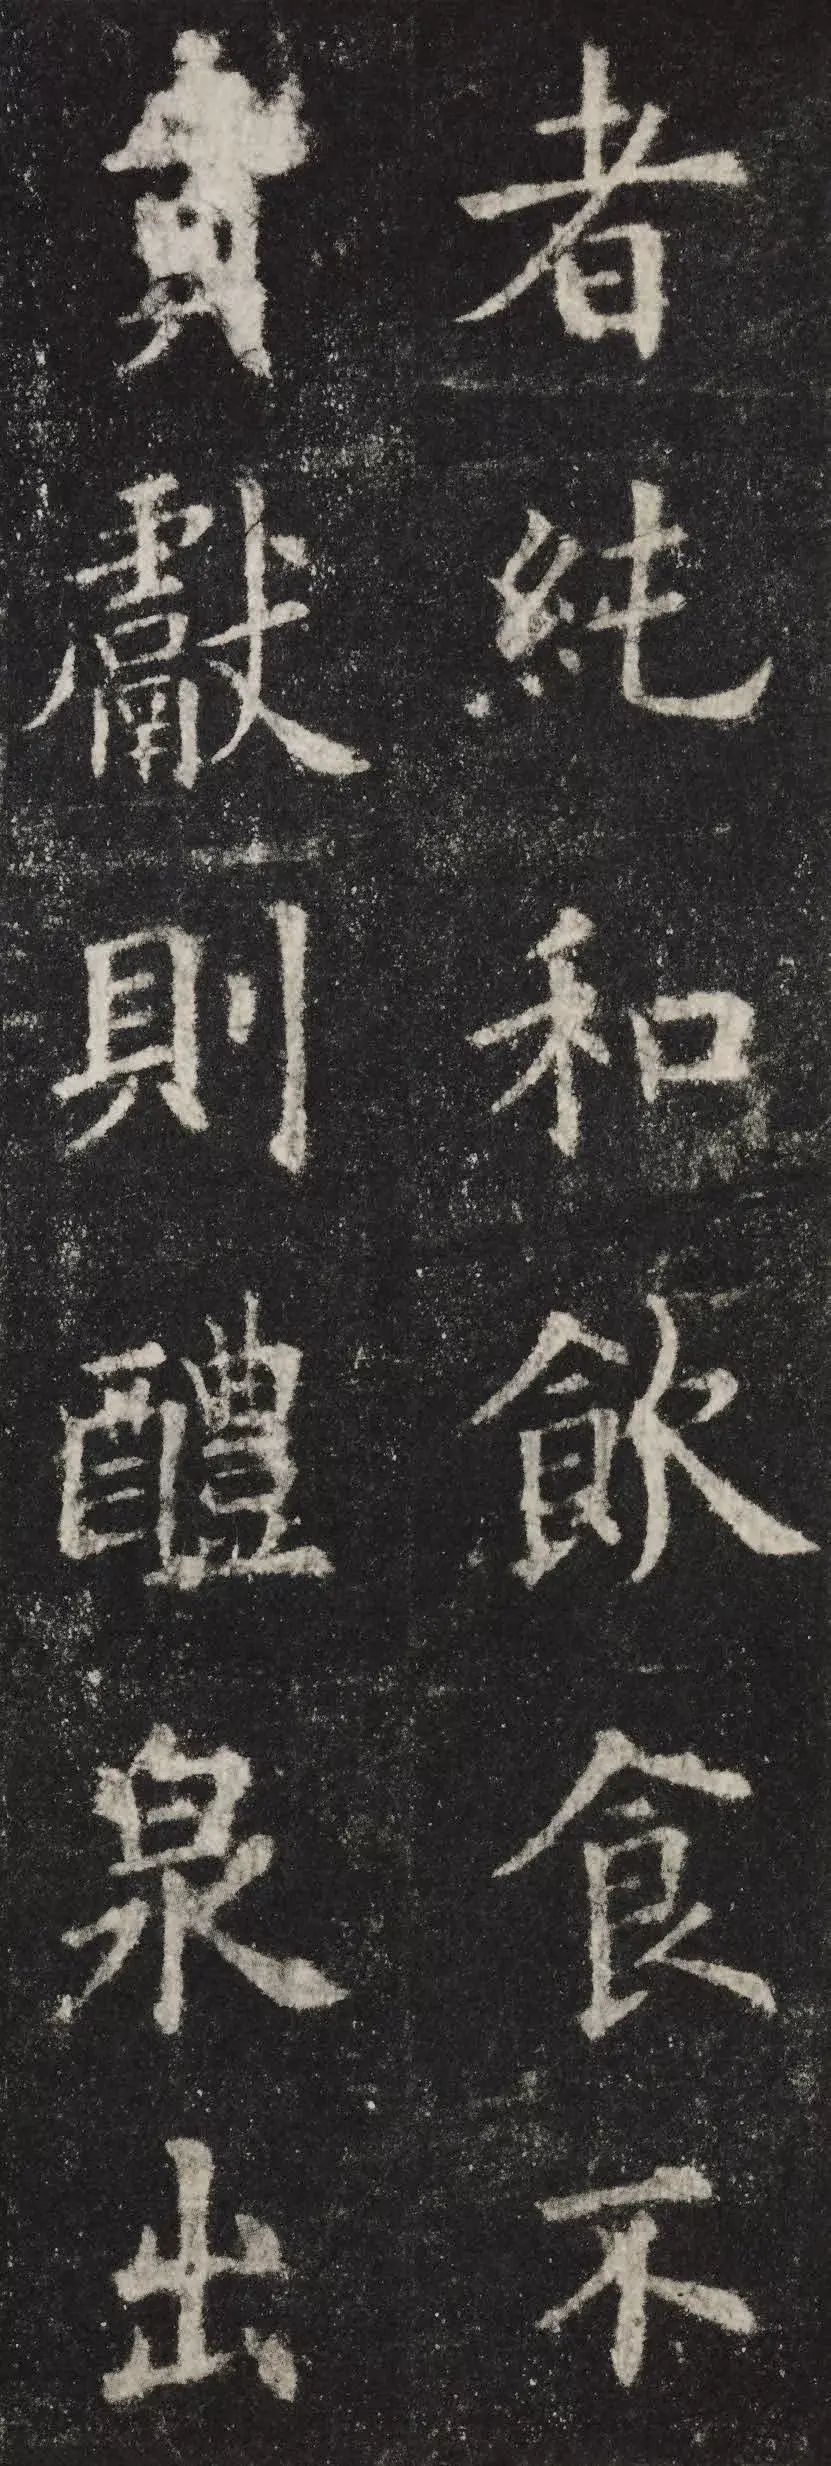 者純和飲食不
貢獻則醴泉出